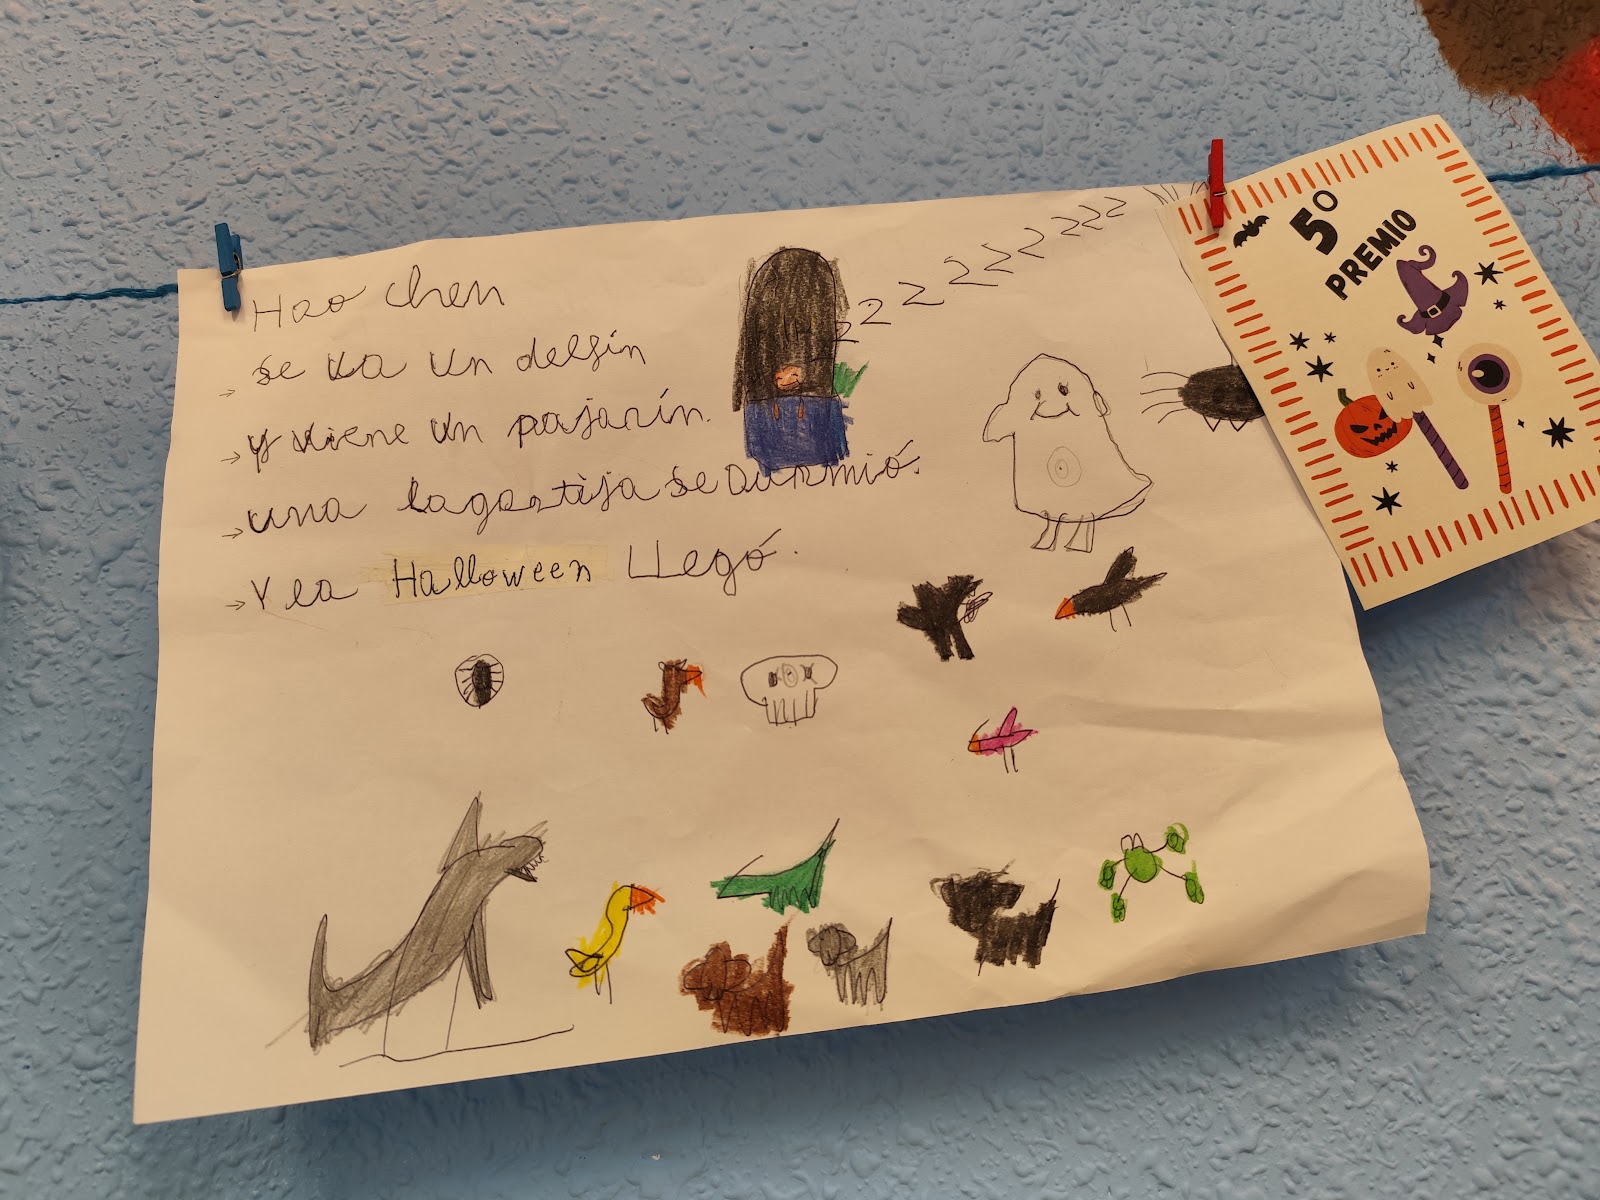 Hao chen
→ se va un delfín
→ y viene un pajarín.
→ una lagartija se Durmió.
→ Y la Halloween LLegó.
zzzzzzzzzzz
5º
PREMIO